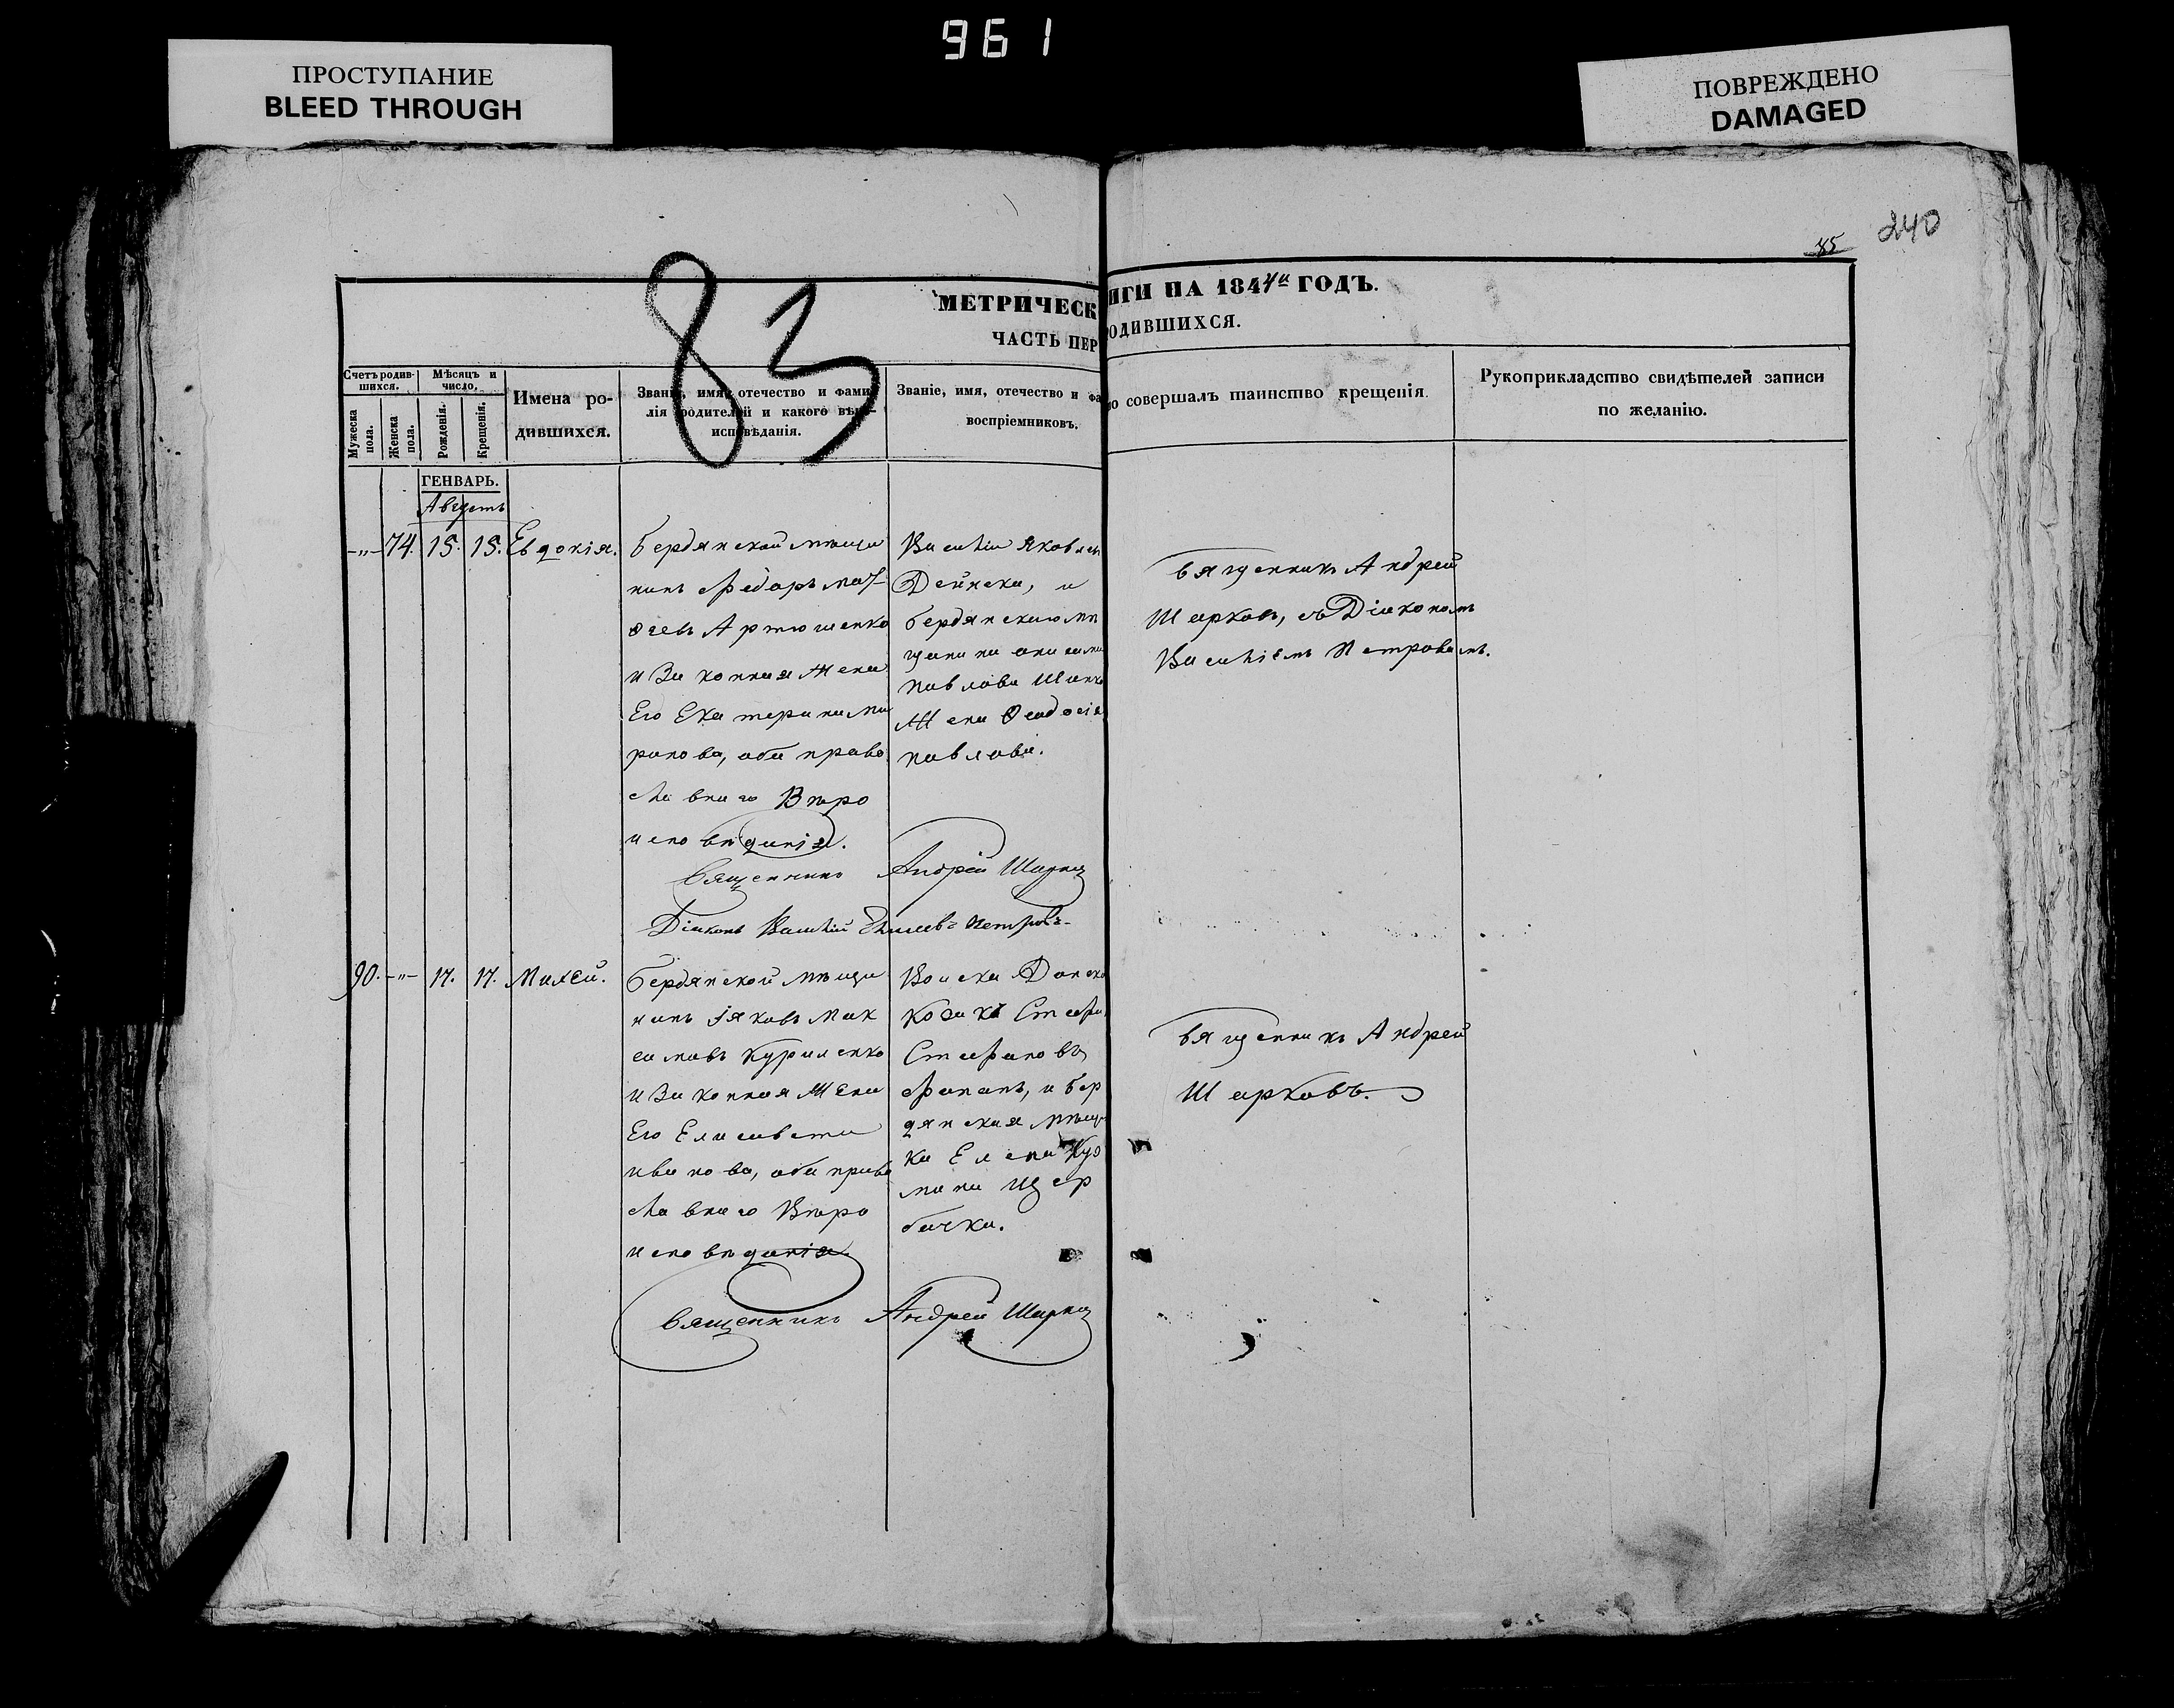 961
ПРОСТУПАНИЕ
BLEED THROUGH
ПОВРЕЖДЕНО
DAMAGED
240
85
83
МЕТРИЧЕСК ИГИ НА 1844й ГОДЪ.
ЧАСТЬ ПЕР ОДИВШИХСЯ.
Счетъ родив-
шихся.
Мѣсяцъ и
число.
Мужеска
пола.
Женска
пола.
Рожденія.
Крещенія.
Имена ро-
дившихся.
Званіе, имя, отечество и фами-
лія родителей и какого вѣро-
исповѣданія.
Званіе, имя, отечество и фа
воспріемниковъ.
то совершалъ таинство крещенія.
Рукоприкладство свидѣтелей записи
по желанію.
ГЕНВАРЬ.
Августъ
-"- 74. 15. 15. Евдокія.
бердянской мѣща
нинъ Ѳедоръ
Артюшенко
и Законная Жена
Его Екатерина Ми
ронова, оба право
славнаго Вѣро
исповѣданія.
Василій Яковлевъ
Дейнека, и
бердянскаго мѣ
щанина
павлова
Жена Ѳеодосія
павлова.
Священникъ Андрей
Шарковъ, съ Діакономъ
Василіемъ Петровымъ.
Священникъ Андрей
Діаконъ Василій Петровъ
90. -"- 17. 17. Михей.
бердянской мѣща
нинъ Іяковъ Мак
симовъ Куриленко
и Законная Жена
Его Елисавета
иванова, оба право
славнаго Вѣро
исповѣданія.
Войска Донско
козакъ Стефа
Стефановъ
и бер
дянская мѣщан
ка Елена Куз
мина Щер
бачка.
Священникъ Андрей
Шарковъ.
Священникъ Андрей